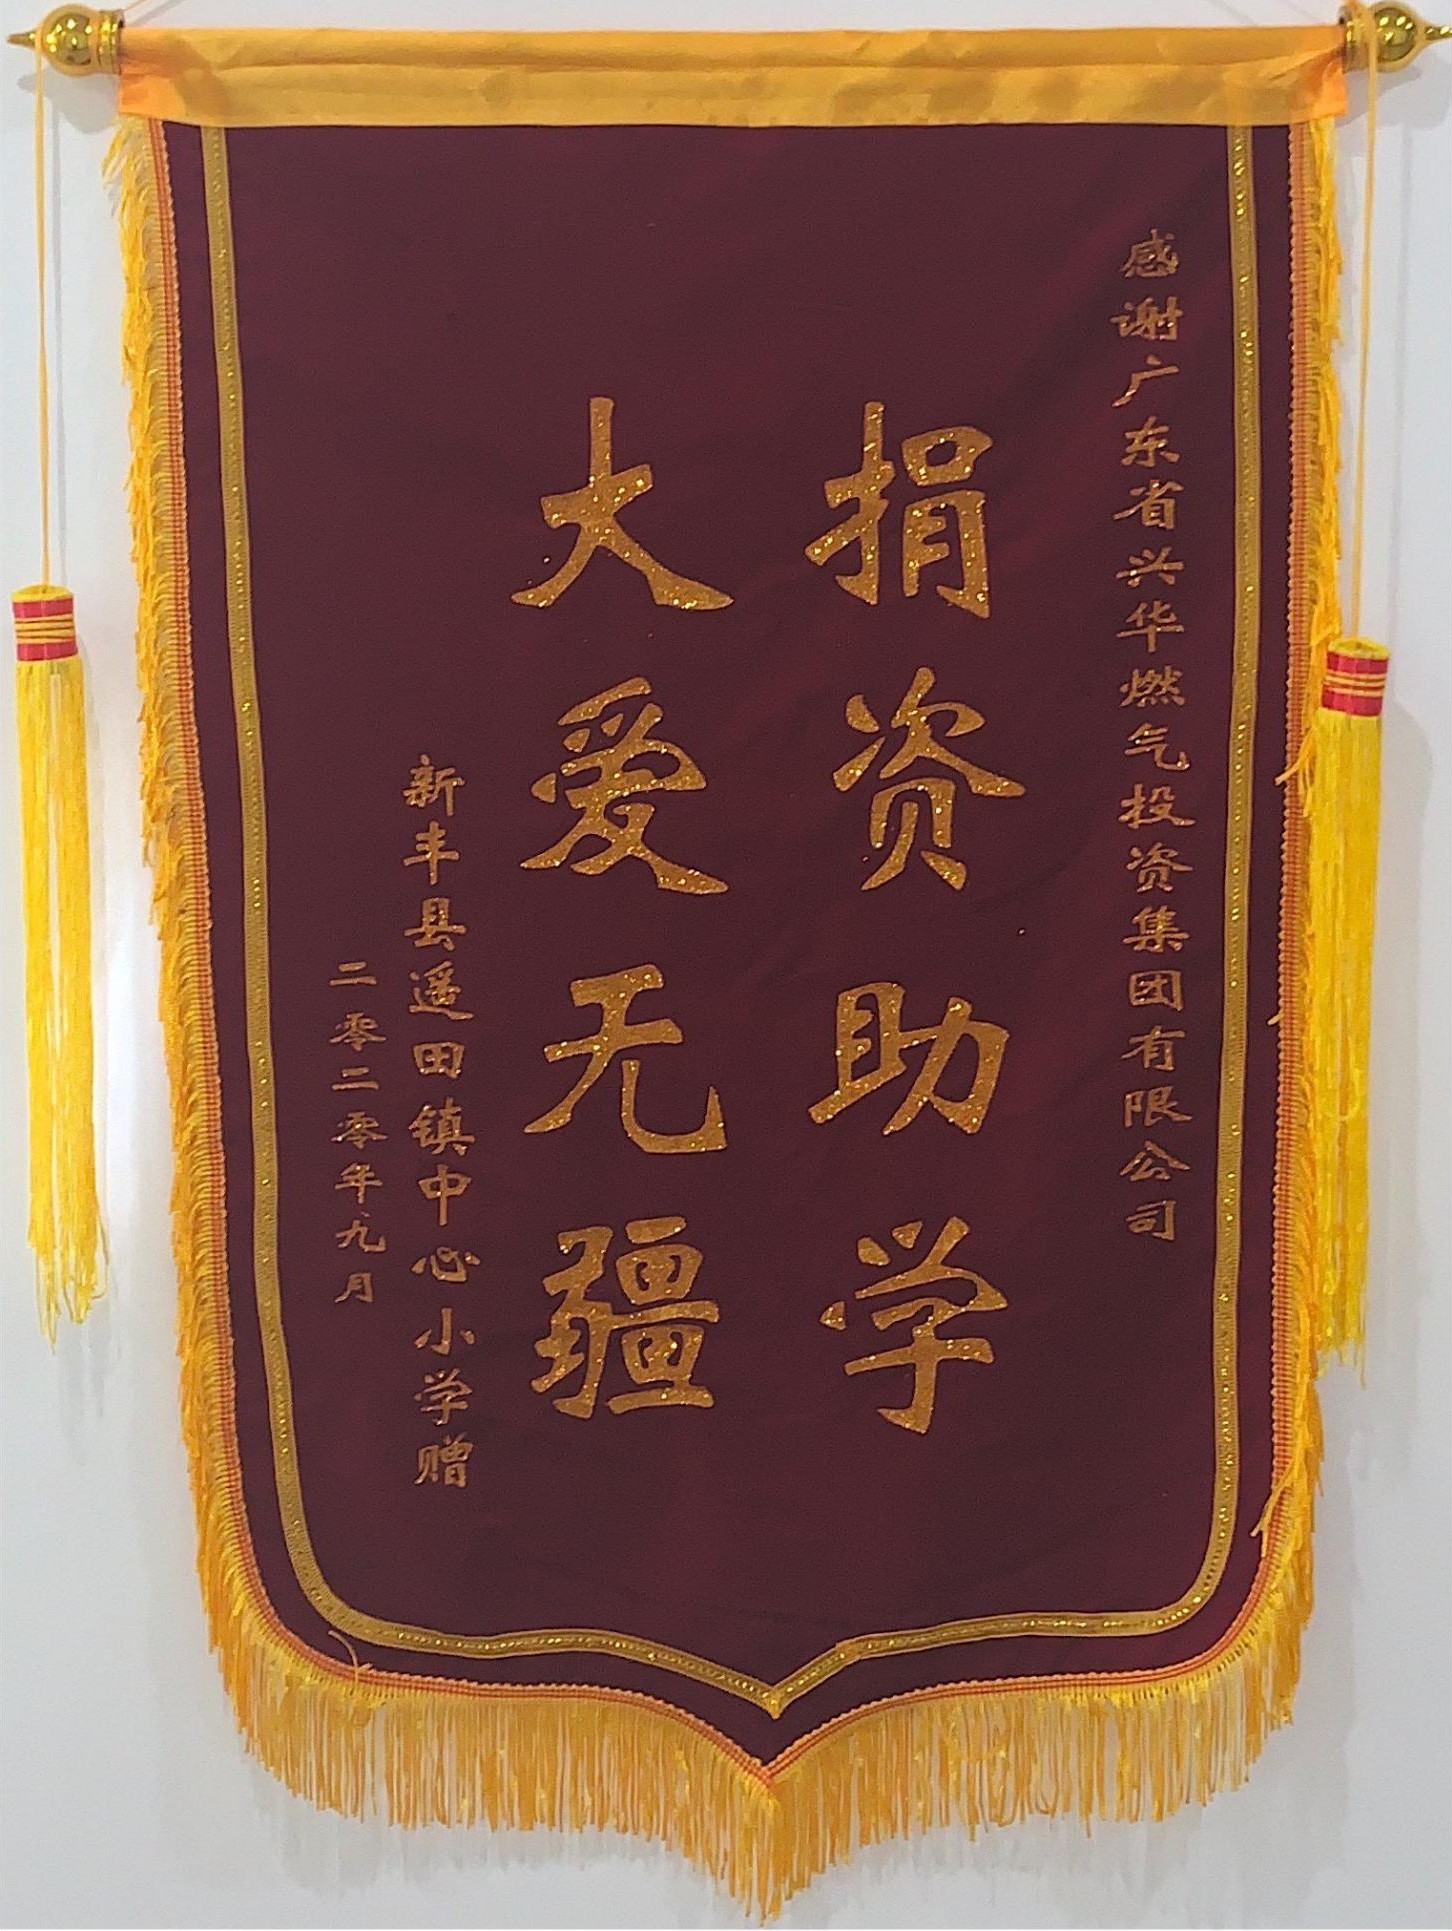 感谢广东省兴华燃气投资集团有限公司
捐资助学
大爱无疆
新丰县遥田镇中心小学赠
二零二零年九月